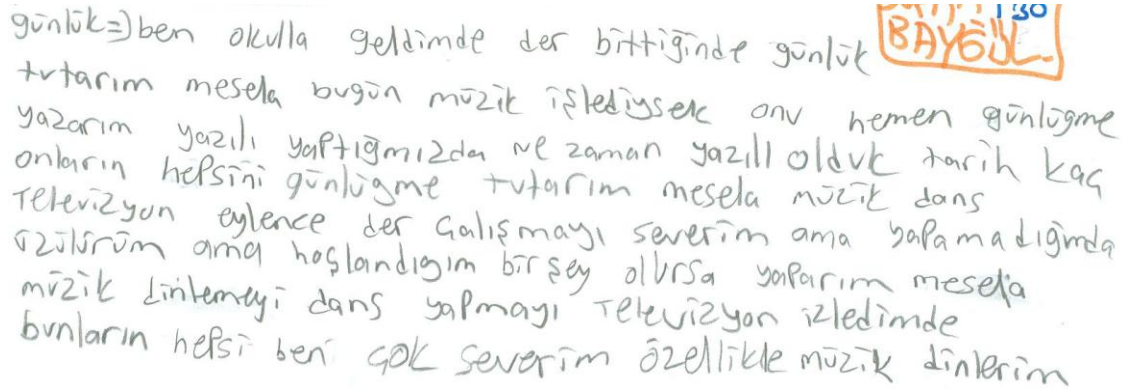 günlük=) ben okulla geldimde der bittiğinde günlük
BAYGÜL
tutarım mesela bugün müzik işlediysek onu hemen günlügme
yazarım yazılı yaptığmızda ne zaman yazıll olduk tarih kaç
onların hepsini günlügme tutarım mesela müzik dans
Televizyon eylence der çalışmayı severim ama yapamadığımda
üzülürüm ama hoşlandıgım bir şey olursa yaparım mesela
müzik dinlemeyi dans yapmayı Televizyon izledimde
bunların hepsi beni çok severim özellikle müzik dinlerim